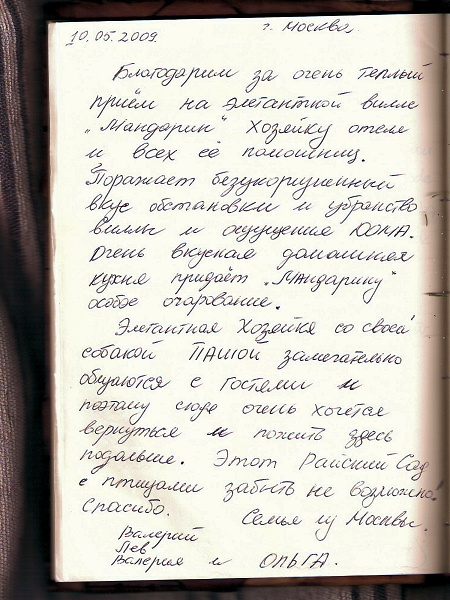 10.05.2009.
г. Москва.
Благодарим за очень теплый
приём на элегантной вилле
„Мандарин" Хозяйку отеля
и всех её помошниц.
Поражает безукоризненный
вкус обстановки и убранство
виллы и ощущение ДОМА.
Очень вкусная домашняя
кухня придаёт „Мандарину"
особое очарование.
Элегантная Хозяйка со своей
собакой ПАШОЙ замечательно
общаются с гостями и
поэтому сюда очень хочется
вернуться и пожить здесь
подольше. Этот Райский Сад
с птицами забыть не возможно!
Спасибо. Семья из Москвы.
Валерий
Лев
Валерия и ОЛЬГА.